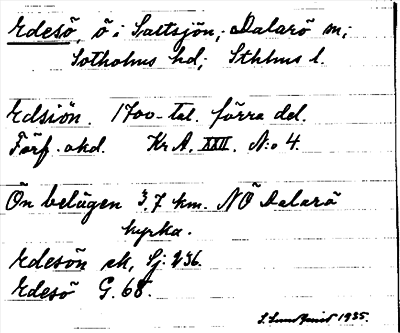 Edesö, ö i Saltsjön; Dalarö sn;
Sotholms hd; Sthlms l.
Edsiön. 1700-tal. förra del.
Förf. okd. Kr A. XXII. N:o 4.
Ön belägen 3,7 km. NÖ Dalarö
kyrka.
Edesön ek, Sj. 936.
Edesö G. 68.
1935.